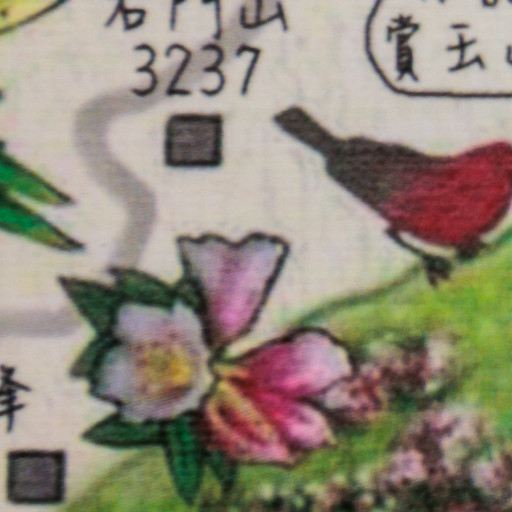 石門山
3237
賞玉山
峰